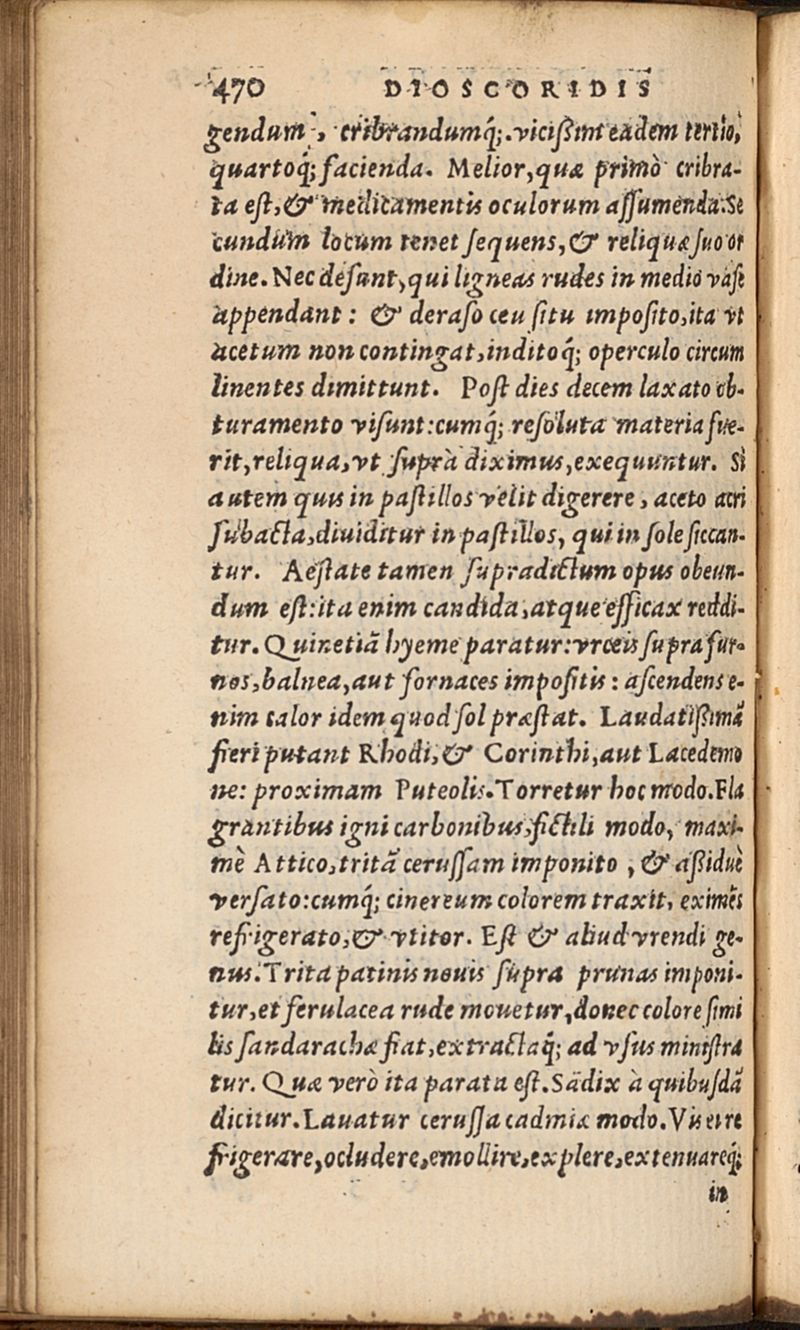 470 DIOSCORIDIS
gendum, cribrandumq́;. vicißim eadem tertiò,
quartoq́; facienda. Melior, quæ primò cribra-
ta est, & medicamentis oculorum assumenda. Se
cundum locum tenet sequens, & reliquæ suo or
dine. Nec desunt, qui ligneas rudes in medio vase
appendant: & deraso ceu situ imposito, ita vt
acetum non contingat, inditoq́; operculo circum
linentes dimittunt. Post dies decem laxato ob-
turamento visunt: cumq́; resoluta materia fue-
rit, reliqua, vt suprà diximus, exequuntur. Si
autem quis in pastillos velit digerere, aceto acri
subacta, diuiditur in pastillos, qui in sole siccan-
tur. Aestate tamen supradictum opus obeun-
dum est: ita enim candida, atque efficax reddi-
tur. Quinetiã hyeme paratur: vrceis supra fur-
nos, balnea, aut fornaces impositis: ascendens e-
nim calor idem quod sol præstat. Laudatißimã
fieri putant Rhodi, & Corinthi, aut Lacedemo
ne: proximam Puteolis. Torretur hoc modo. Fla
grantibus igni carbonibus, fictili modo, maxi-
mè Attico, tritã cerussam imponito, & aßiduè
versato: cumq́; cinereum colorem traxit, eximẽs
refrigerato, & vtitor. Est & aliud vrendi ge-
nus. Trita patinis nouis supra prunas imponi-
tur, et ferulacea rude mouetur, donec colore simi
lis sandarachæ fiat, extractaq́; ad vsus ministra
tur. Quæ verò ita parata est. Sãdix à quibusdã
dicitur. Lauatur cerussa cadmiæ modo. Vis ei re
frigerare, ocludere, emollire, explere, extenuareq́;
in